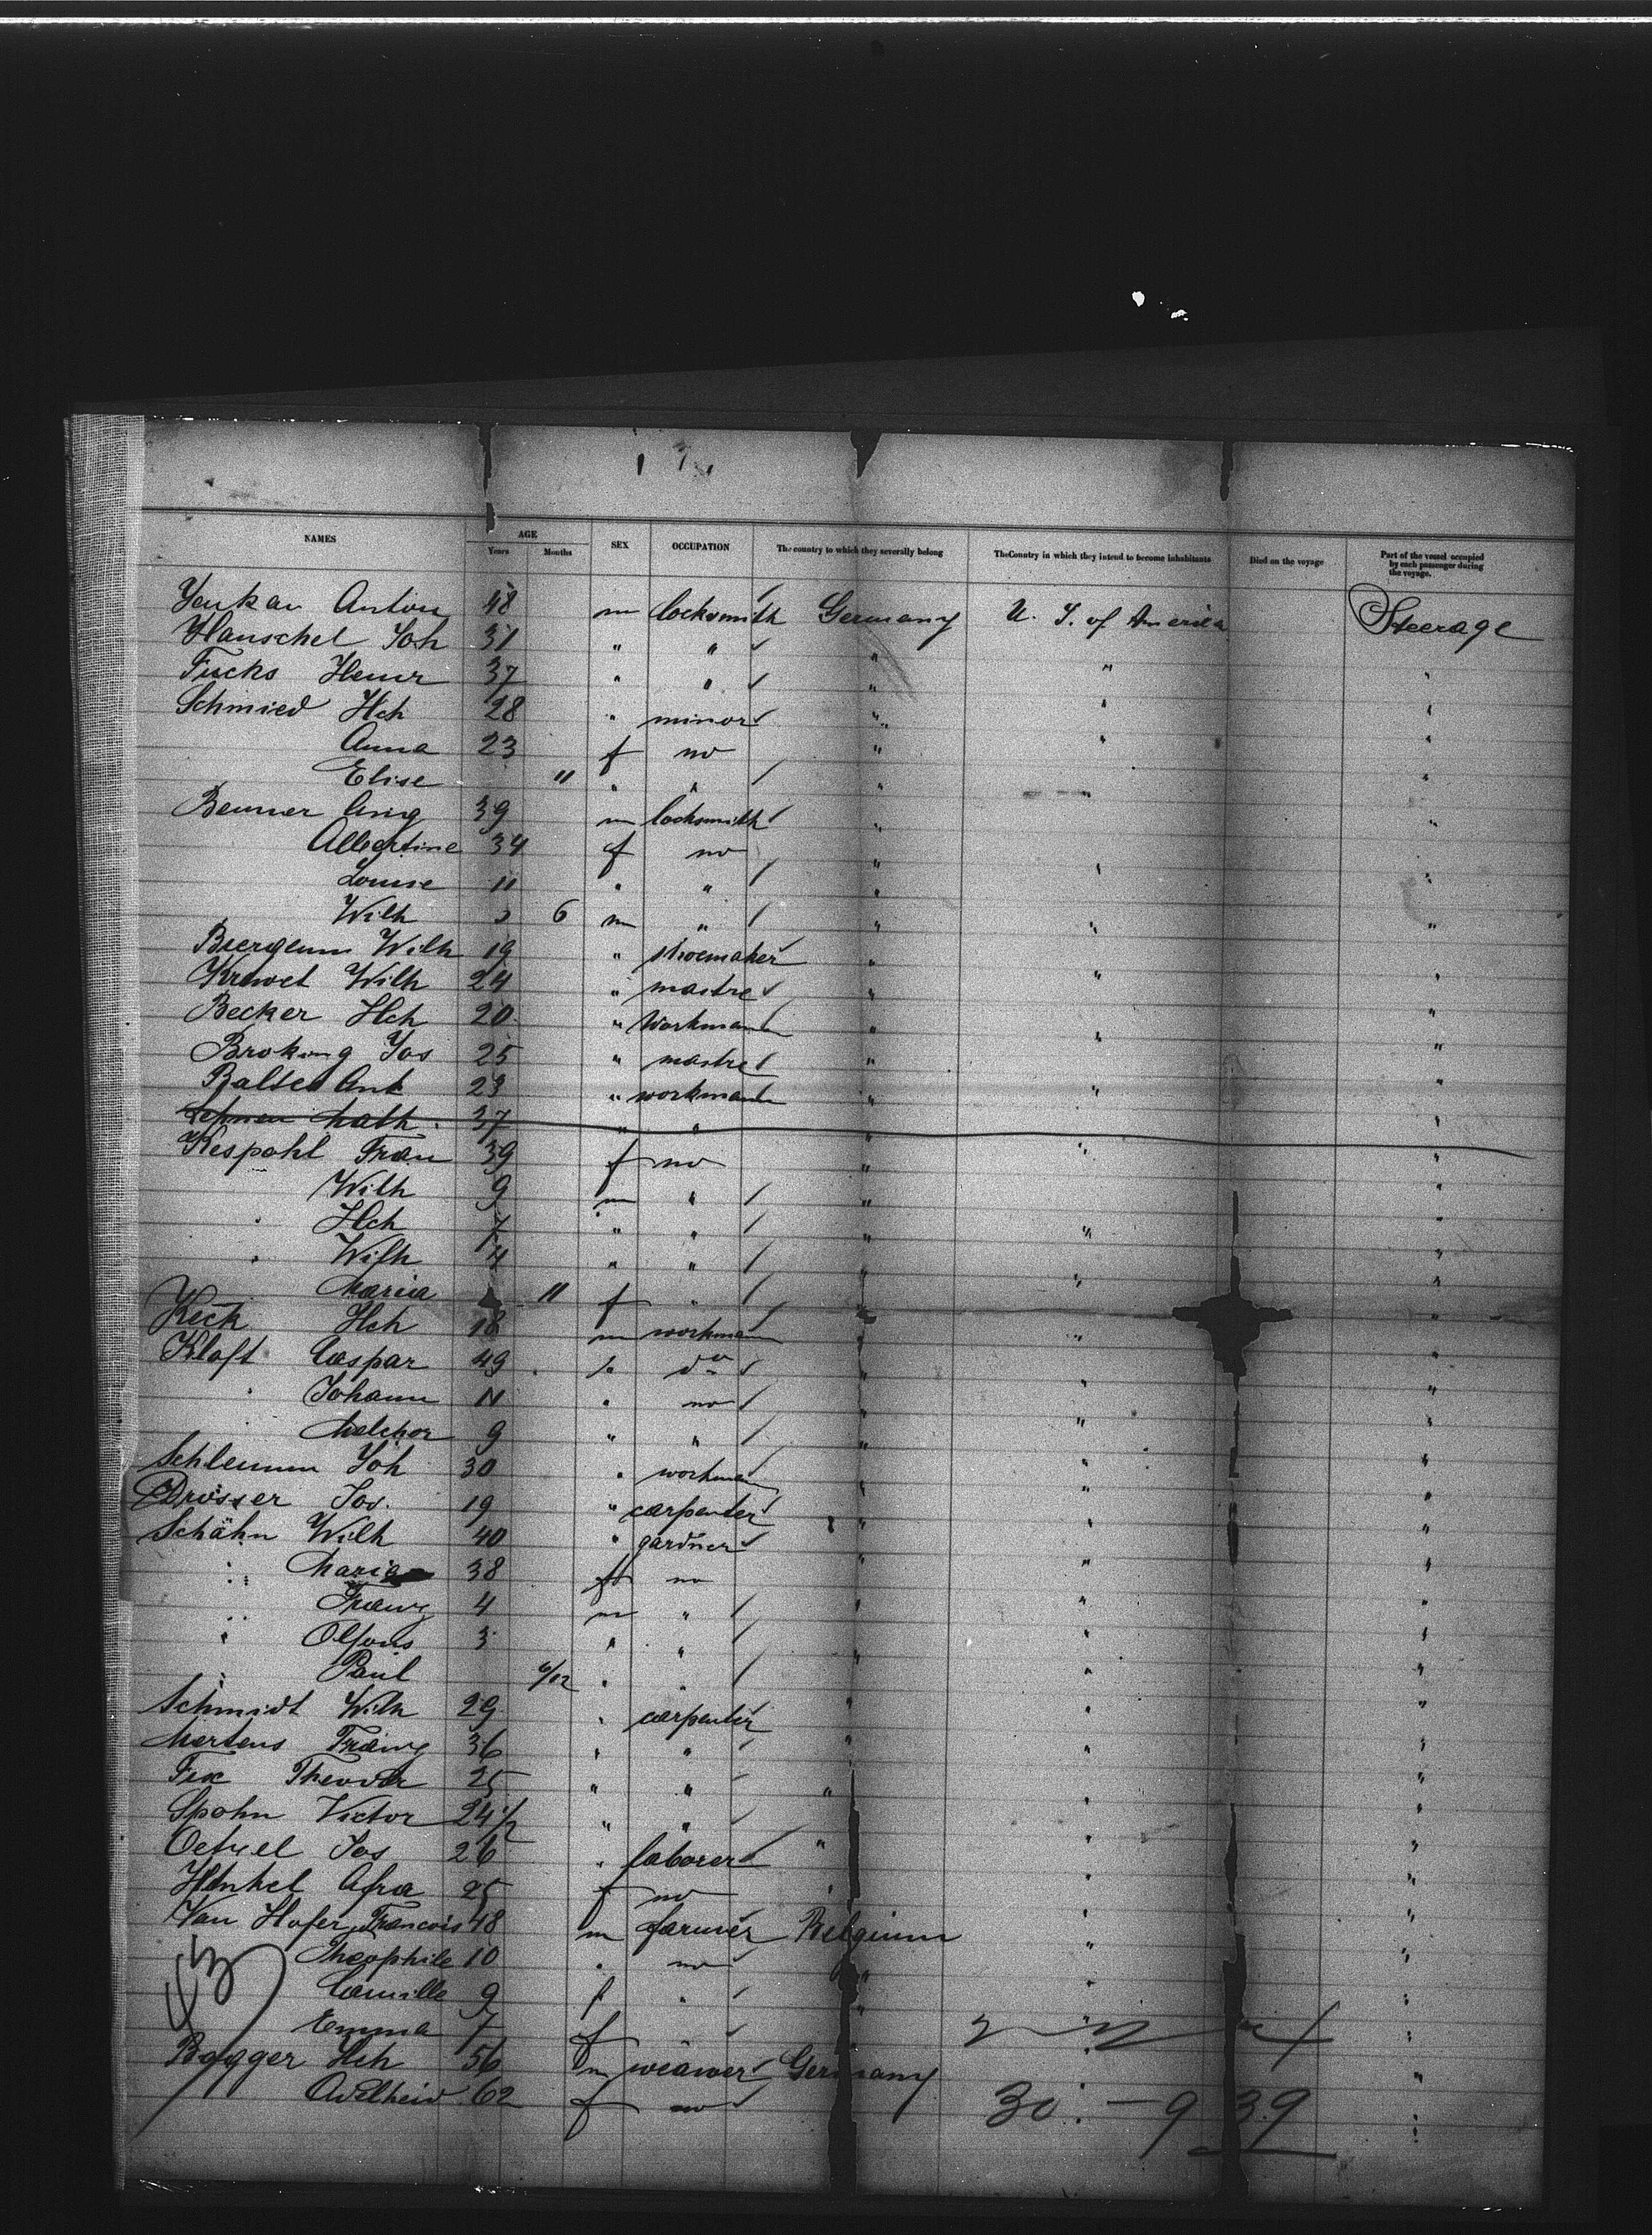 NAMES AGE Years Months SEX OCCUPATION The country to which they severally belong The Country in which they intend to become inhabitants Died on the voyage Part of the vessel occupied by each passenger during the voyage.
Anton 48 m locksmith Germany U. S. of America Steerage
Hanschel Joh 31 " " " " "
Fucks Heinr 37 " " " " "
Schmied Hch 28 " minor " " "
Anna 23 f no " " "
Elise 11 " " " " "
39 m locksmith " " "
Albertine 34 f no " " "
Louise 11 " " " " "
Wilh 6 m " " " "
Wilh 19 " shoemaker " " "
Krewet Wilh 24 " mastre " " "
Becker Hch 20 " Workmann " " "
Broking Jos 25 " mastre " " "
Baltes Ant 23 " workmann " " "
Math. 37 " " " " "
Kespohl Frau 39 f no " " "
Wilh 9 m " " " "
Hch 7 " " " " "
Wilh 4 " " " " "
Maria 11 f " " " "
Keck Hch 18 m workman " " "
Kloft Caspar 49 " do " " "
Johann 11 " no " " "
Melchor 9 " " " " "
Schlemm Joh 30 " workman " " "
Drösser Jos. 19 " carpenter " " "
Schähn Wilh 40 " gardner " " "
" Maria 38 f no " " "
" Franz 4 m " " " "
" Alfons 3 " " " " "
" Paul 6/12 " " " " "
Schmidt Wilh 29 " carpenter " " "
Mertens Franz 36 " " " " "
Fix Theodor 25 " " " " "
Spohn Victor 24 1/2 " " " " "
Jos 26 " laborer " " "
Henkel Afra 25 f no " " "
Van Hofer Francois 48 m farmer Belgium " "
Theophile 10 " no " " "
Camille 9 f " " " "
Emma 7 f " " "
43
Bogger Hch 56 m weawer Germany " "
Adelheid 62 f no "
30 - 9 39